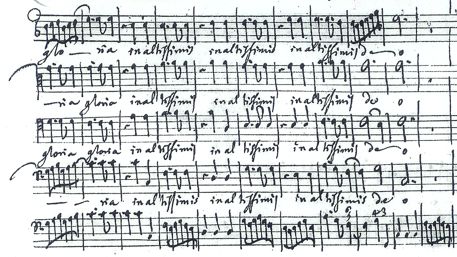 glo — ria in altissimis in altissimis in altissimis de — o
— ria gloria in altissimis in altissimis in altissimis de o
gloria gloria in altissimis in altissimis in altissimis de — o
— — ria in altissimis in altissimis in altissimis de o